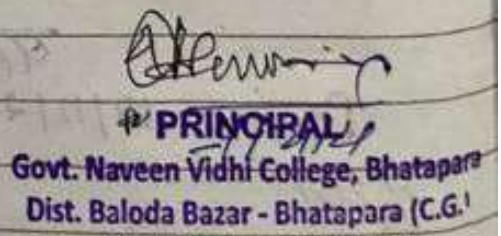 PRINCIPAL
Govt. Naveen Vidhi College, Bhatapara
Dist. Baloda Bazar - Bhatapara (C.G.)